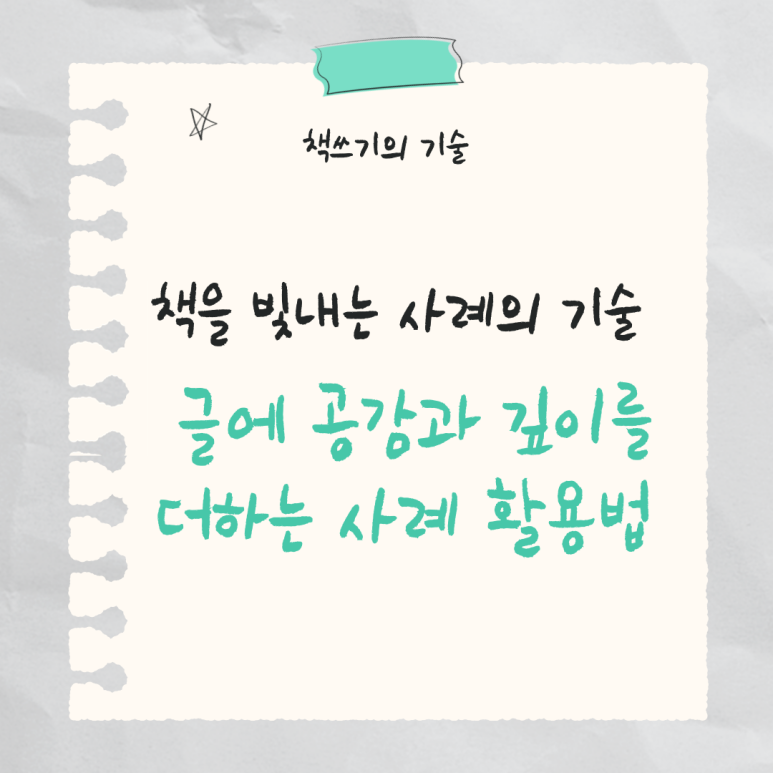 책쓰기의 기술
책을 빛내는 사례의 기술
글에 공감과 깊이를
더하는 사례 활용법